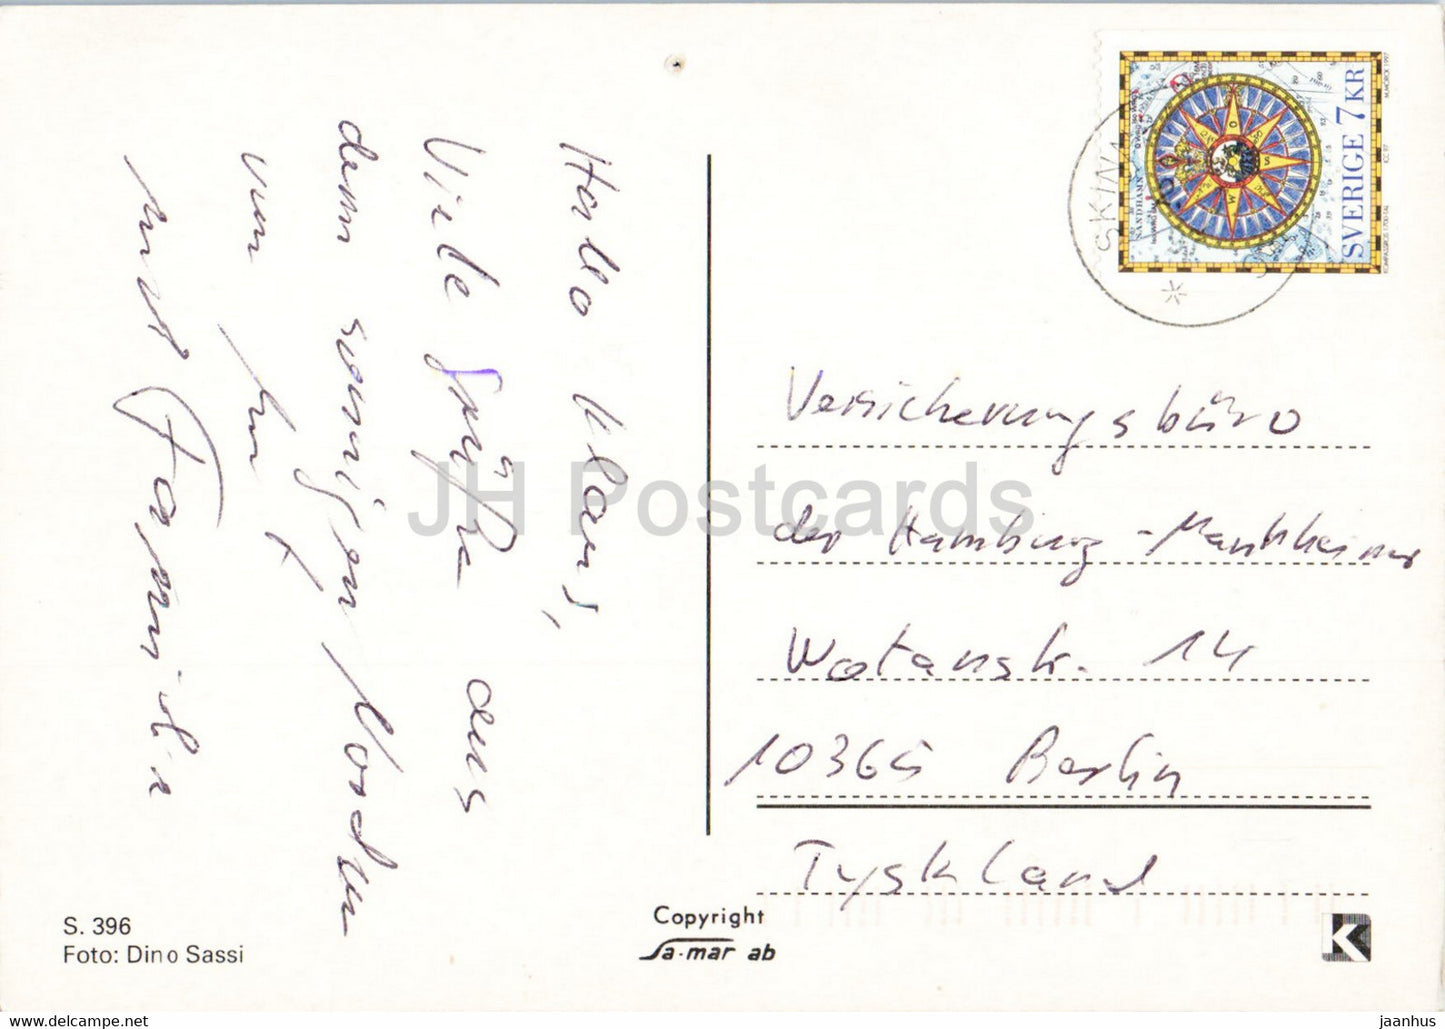 Hallo Klaus,
Viele Grüße aus
dem sonnigen Norden
von
und Familie
SVERIGE 7 KR
SANDHAMN
SKINN
Versicherungsbüro
der Hamburg-Mannheimer
Wotanstr. 14
10365 Berlin
Tyskland
JH Postcards
S. 396
Foto: Dino Sassi
Copyright
Sa-mar ab
K
www.delcampe.net
jaanhus